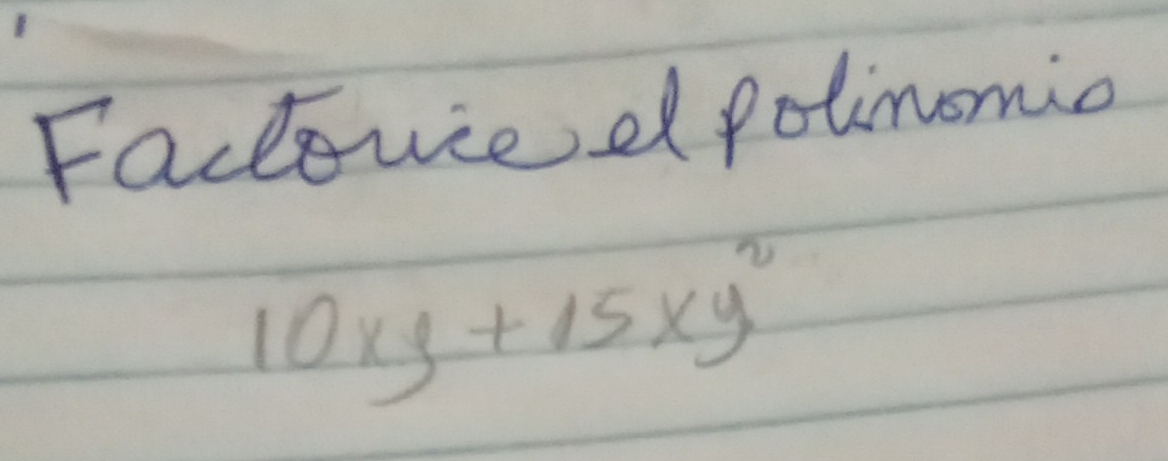 Factorice el polinomio
10xy + 15xy²